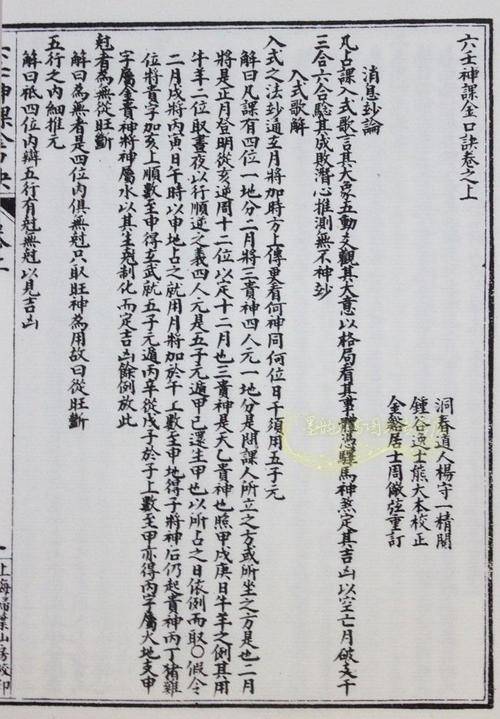 六壬神課金口訣卷之上
洞春道人楊守一精閱
鍾谷逸士熊大本校正
金谿居士周儆弦重訂
消息玅論
凡占課入式歌言其大象五動爻觀其大意以格局看其事體憑驛馬神煞定其吉凶以空亡月破支干
三合六合驗其成敗潛心推測無不神玅
入式歌解
入式之法玅通至月將加時方上傳更看何神同何位日干須用五子元
解曰凡課有四位一地分二月將三貴神四人元一地分是問課人所立之方或所坐之方是也二月
將是正月登明從亥逆周十二位以定十二月也三貴神是天乙貴神也照甲戊庚日牛羊之例其用
牛羊二位取晝夜以行順逆之義四人元是五子元遁甲己還生甲也以所占之日依例而取〇假令
二月戌將丙寅日午時以申地占之就用月將加於午上數至申地得子將神后仍起貴神丙丁猪雞
位將貴字加亥上順數至申得玄武就五子元遁丙辛從戊子於子上數至申亦得丙字屬火地支申
字屬金貴神將神屬水以其生剋制化而定吉凶餘例放此
剋者為無從旺斷
解曰為無者是四位內俱無剋只取旺神為用故曰從旺斷
五行之內細推元
解曰祇四位內辯五行有剋無剋以見吉凶
上海埽葉山房校印